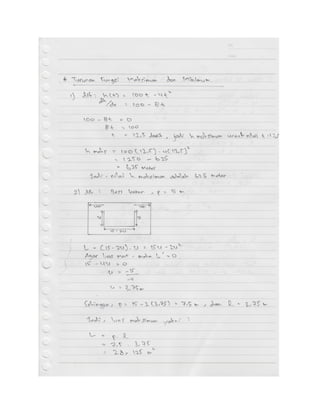 * Turunan Fungsi Maksimum dan Minimum
1) dik : h(t) = 100t - 4t²
dh/dt : 100 - 8t
100 - 8t = 0
8t = 100
t = 12,5 detik, jadi h maksimum untuk nilai t 12,5
h maks = 100(12,5) - 4(12,5)²
= 1250 - 625
= 625 meter
Jadi, nilai h maksimum adalah 625 meter
15 - 2U
L = (15-2U).U = 15U - 2U²
Agar luas max - maka L' = 0
15 - 4U = 0
U = -15
-4
U = 3,75 m
Sehingga, p = 15 - 2(3,75) = 7,5 m, dan l = 3,75 m
Jadi, luas maksimum yakni :
L = p . l
= 7,5 . 3,75
= 28,125 m²